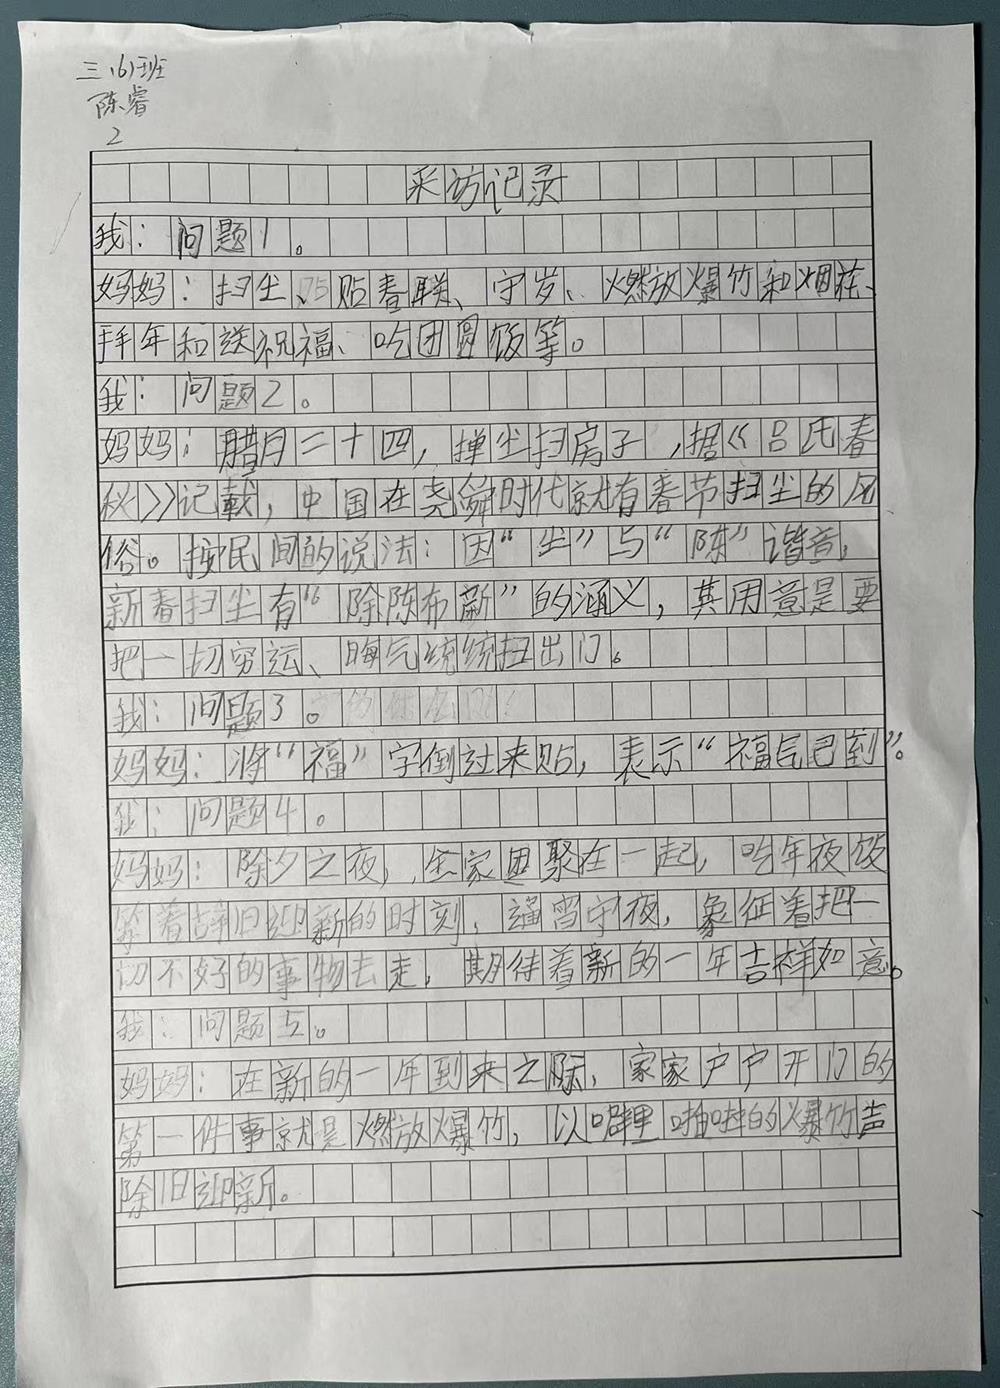 三(6)班
陈睿
2
采访记录
我：问题1。
妈妈：扫尘、贴春联、守岁、燃放爆竹和烟花、
拜年和送祝福、吃团圆饭等。
我：问题2。
妈妈：腊月二十四，掸尘扫房子，据《吕氏春
秋》记载，中国在尧舜时代就有春节扫尘的风
俗。按民间的说法：因“尘”与“陈”谐音，
新春扫尘有“除陈布新”的涵义，其用意是要
把一切穷运、晦气统统扫出门。
我：问题3。
妈妈：将“福”字倒过来贴，表示“福气已到”。
我：问题4。
妈妈：除夕之夜，全家团聚在一起，吃年夜饭
等着辞旧迎新的时刻，通宵守夜，象征着把一
切不好的事物去走，期待着新的一年吉祥如意。
我：问题5。
妈妈：在新的一年到来之际，家家户户开门的
第一件事就是燃放爆竹，以噼哩啪啦的爆竹声
除旧迎新。